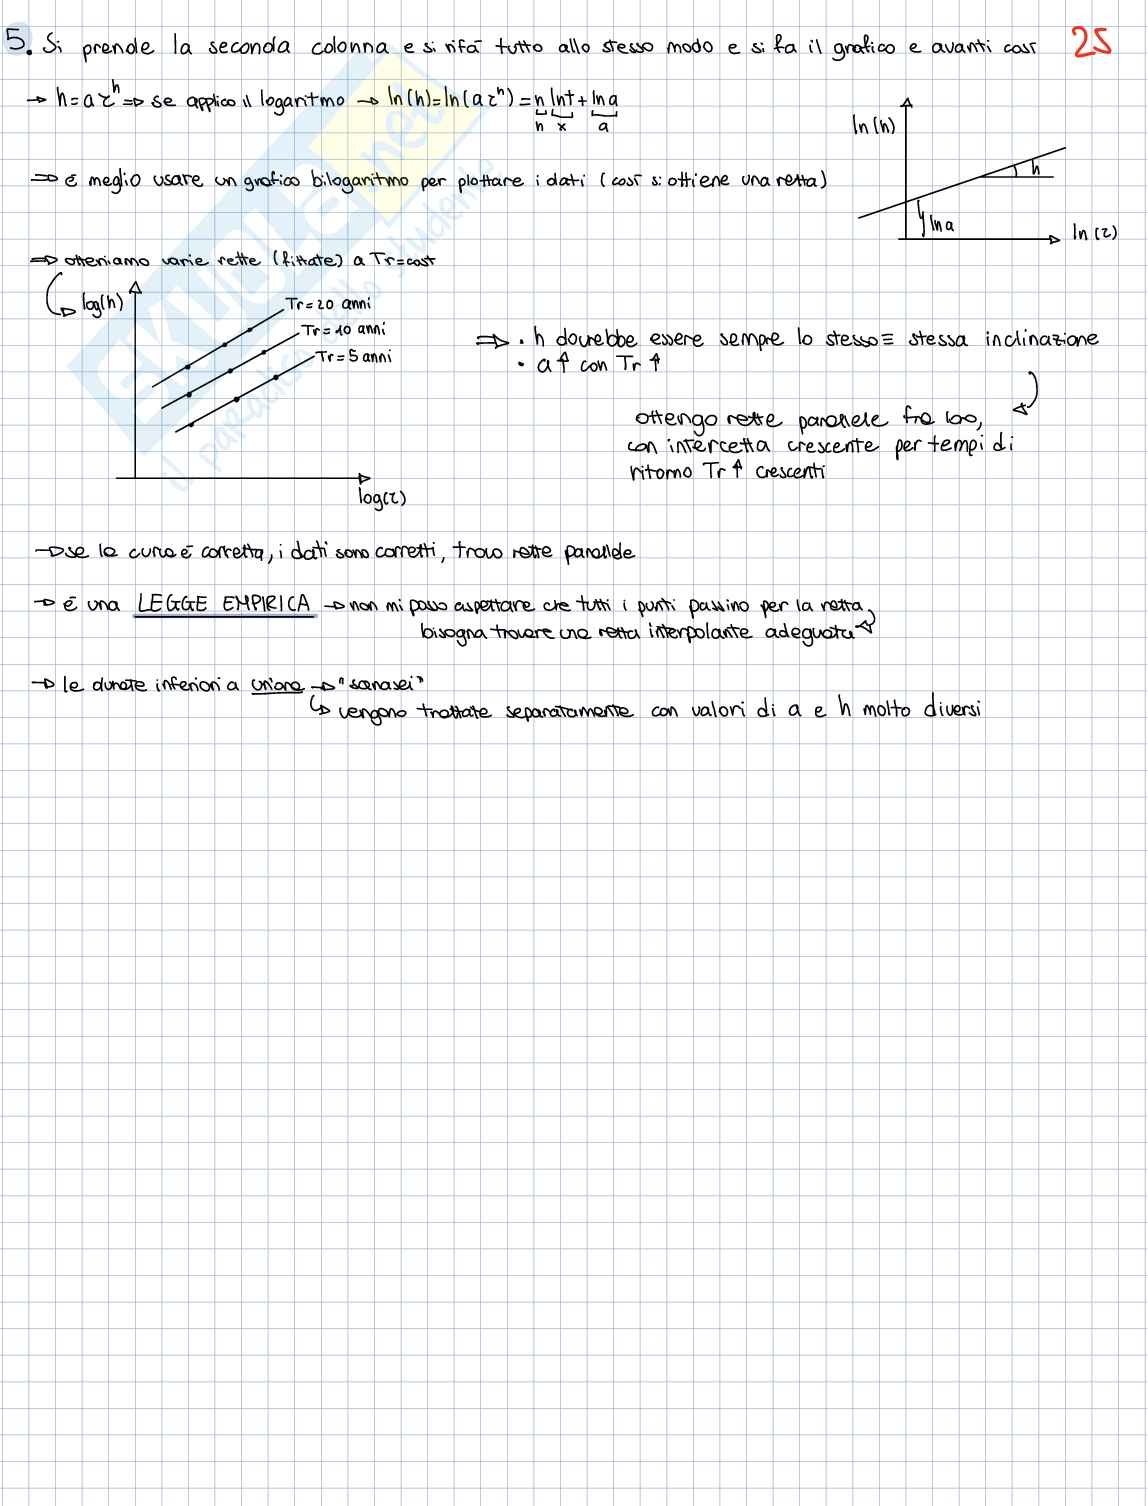 5. Si prende la seconda colonna e si rifà tutto allo stesso modo e si fa il grafico e avanti così
25
→ h = aτⁿ ⇒ se applico il logaritmo → ln(h) = ln(aτⁿ) = n lnt + ln a
n x a
ln(h)
n
ln a
ln(τ)
⇒ è meglio usare un grafico bilogaritmo per plottare i dati (così si ottiene una retta)
⇒ otteniamo varie rette (fittate) a Tr=cost
log(h)
Tr=20 anni
Tr=10 anni
Tr=5 anni
log(τ)
⇒ • n dovrebbe essere sempre lo stesso ≡ stessa inclinazione
• a↑ con Tr↑
ottengo rette parallele fra loro,
con intercetta crescente per tempi di
ritorno Tr↑ crescenti
→ se la curva è corretta, i dati sono corretti, trovo rette parallele
→ è una LEGGE EMPIRICA → non mi posso aspettare che tutti i punti passino per la retta,
bisogna trovare una retta interpolante adeguata
→ le durate inferiori a un'ora → "scravasci"
vengono trattate separatamente con valori di a e n molto diversi
SKUOLA.net
il paradiso dello studente